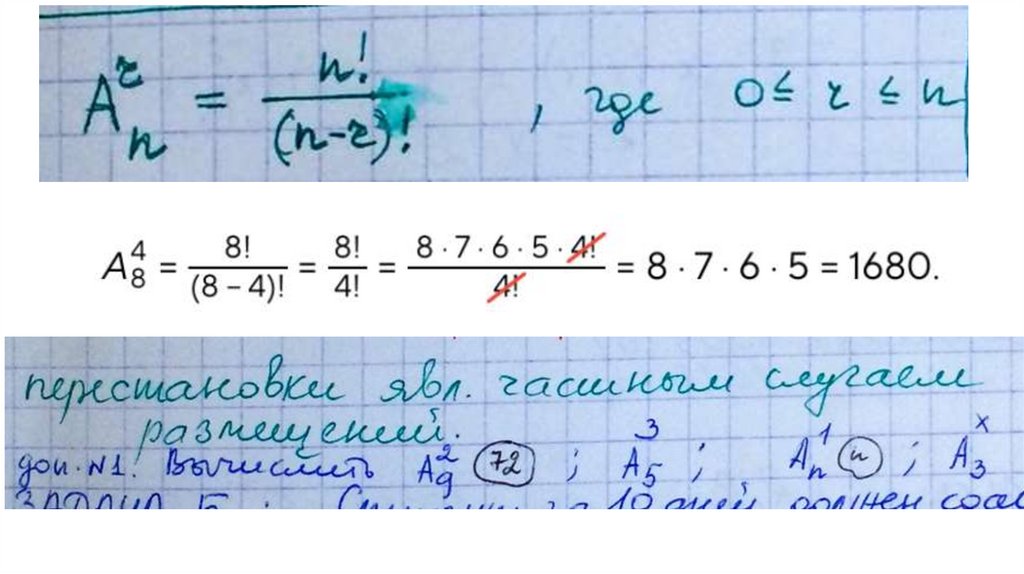 Aⁿᵣ = n! / (n-r)! , где 0 ≤ r ≤ n
A₈⁴ = 8! / (8 – 4)! = 8! / 4! = 8 · 7 · 6 · 5 · 4! / 4! = 8 · 7 · 6 · 5 = 1680.
перестановки явл. частным случаем
размещений.
доп. N1. Вычислить A₉² (72) ; A₅³ ; Aₙ¹ (n) ; A₃ˣ
10 дней должен